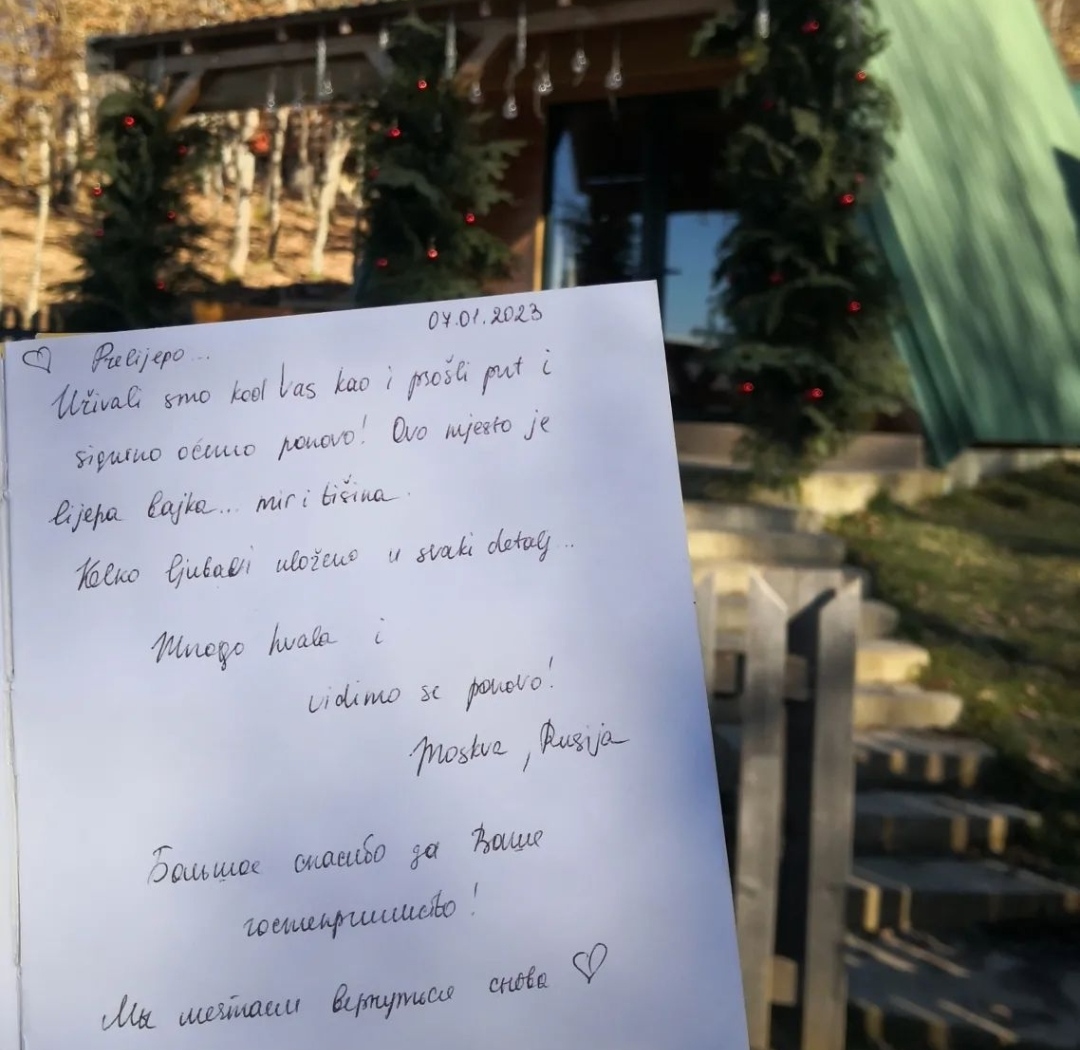 07.01.2023
Prelijepo...
Uživali smo kod Vas kao i prošli put i
sigurno oćemo ponovo! Ovo mjesto je
lijepa bajka... mir i tišina.
Kolko ljubavi uloženo u svaki detalj...
Mnogo hvala i
vidimo se ponovo!
Moskva, Rusija
Большое спасибо за Ваше
гостеприимство!
Мы мечтаем вернуться снова